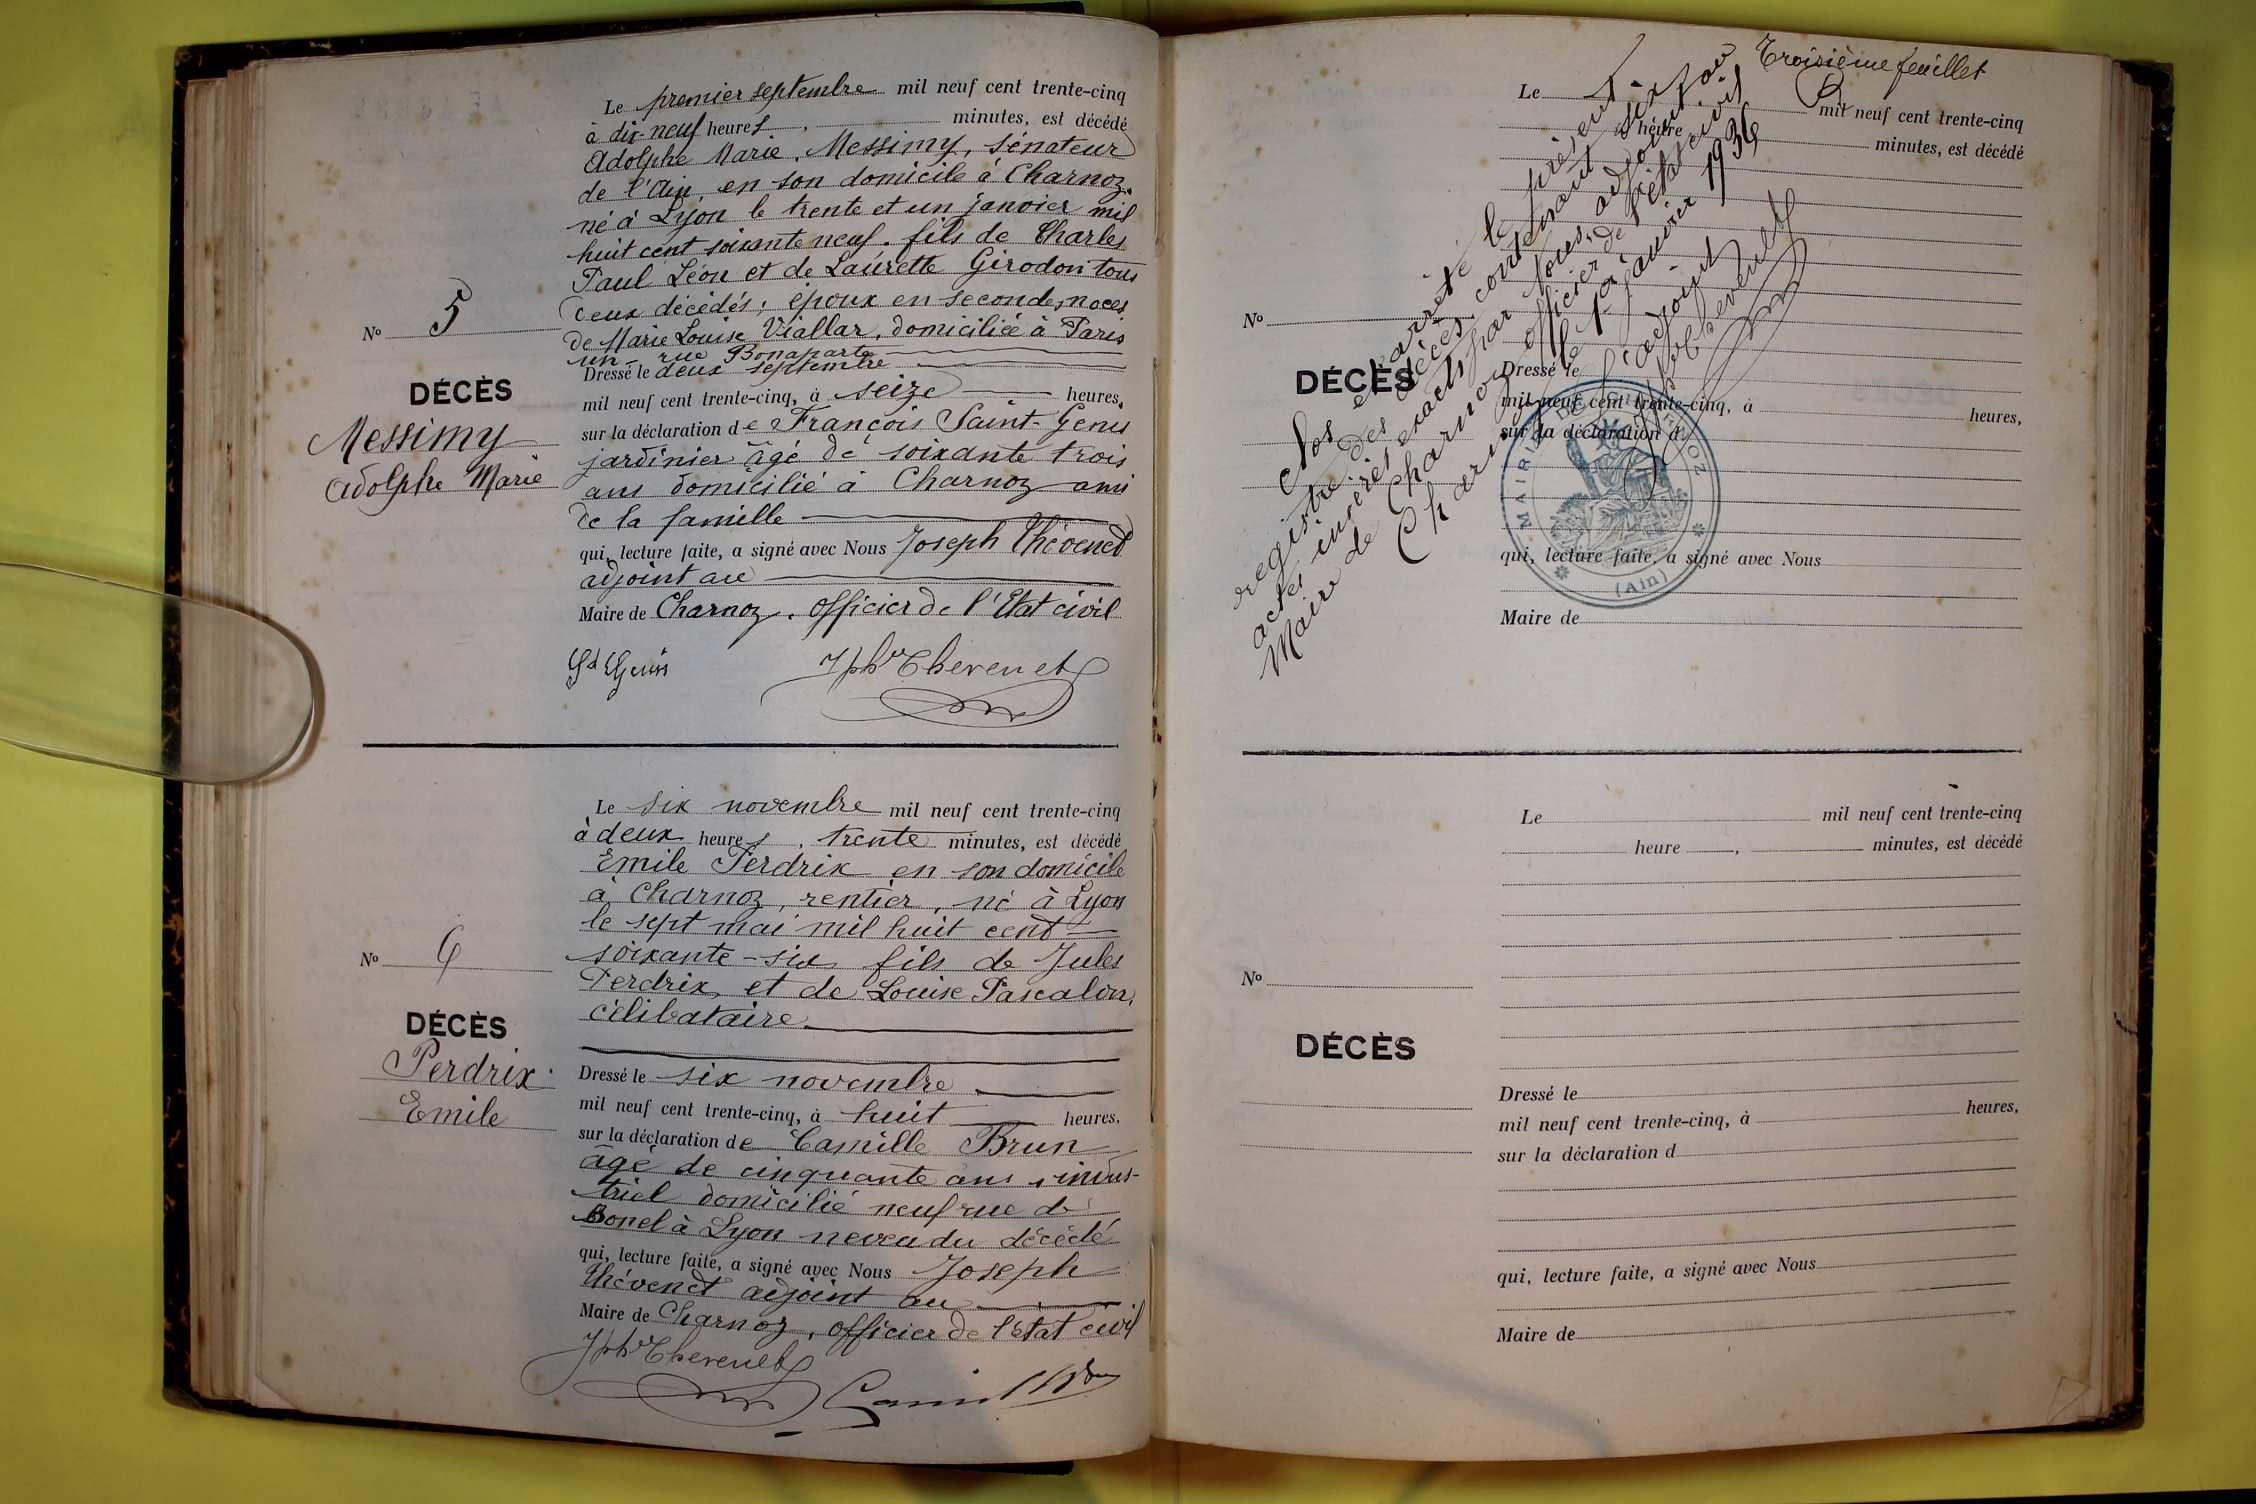 Le premier septembre mil neuf cent trente-cinq
à dix-neuf heures, minutes, est décédé
Adolphe Marie Messimy, sénateur
de l'Ain, en son domicile à Charnoz.
né à Lyon le trente et un janvier mil
huit cent soixante neuf. fils de Charles
Paul Léon et de Laurette Girodon tous
deux décédés; époux en secondes noces
de Marie Louise Viallar, domiciliée à Paris
un rue Bonaparte
Dressé le deux septembre
mil neuf cent trente-cinq, à seize heures,
sur la déclaration de François Saint-Genis
jardinier âgé de soixante trois
ans domicilié à Charnoz ami
de la famille
qui, lecture faite, a signé avec Nous Joseph Thévenet
adjoint au
Maire de Charnoz, officier de l'Etat civil
Jph Thevenet
No 5
DÉCÈS
Messimy
Adolphe Marie
Le six novembre mil neuf cent trente-cinq
à deux heures, trente minutes, est décédé
Emile Perdrix en son domicile
à Charnoz, rentier, né à Lyon
le sept mai mil huit cent
soixante-six fils de Jules
Perdrix et de Louise Pascalon,
célibataire
Dressé le six novembre
mil neuf cent trente-cinq, à huit heures,
sur la déclaration de Camille Brun
âgé de cinquante ans, indus-
triel domicilié neuf rue de
Bonel à Lyon neveu du décédé
qui, lecture faite, a signé avec Nous Joseph
Thévenet adjoint au
Maire de Charnoz, officier de l'état civil
Jph Thevenet
No 6
DÉCÈS
Perdrix
Emile
Troisième feuillet
Le mil neuf cent trente-cinq
heure minutes, est décédé
No
DÉCÈS
Dressé le
mil neuf cent trente-cinq, à heures,
sur la déclaration d
qui, lecture faite, a signé avec Nous
Maire de
Clos et arrêté le présent
registre des décès contenant six
actes inscrits exacts par Nous, adjoint au
Maire de Charnoz officier de l'état civil
Charnoz le 1er janvier 1936
l'adjoint
Jph Thevenet
MAIRIE DE CHARNOZ
(Ain)
Le mil neuf cent trente-cinq
heure, minutes, est décédé
No
DÉCÈS
Dressé le
mil neuf cent trente-cinq, à heures,
sur la déclaration d
qui, lecture faite, a signé avec Nous
Maire de